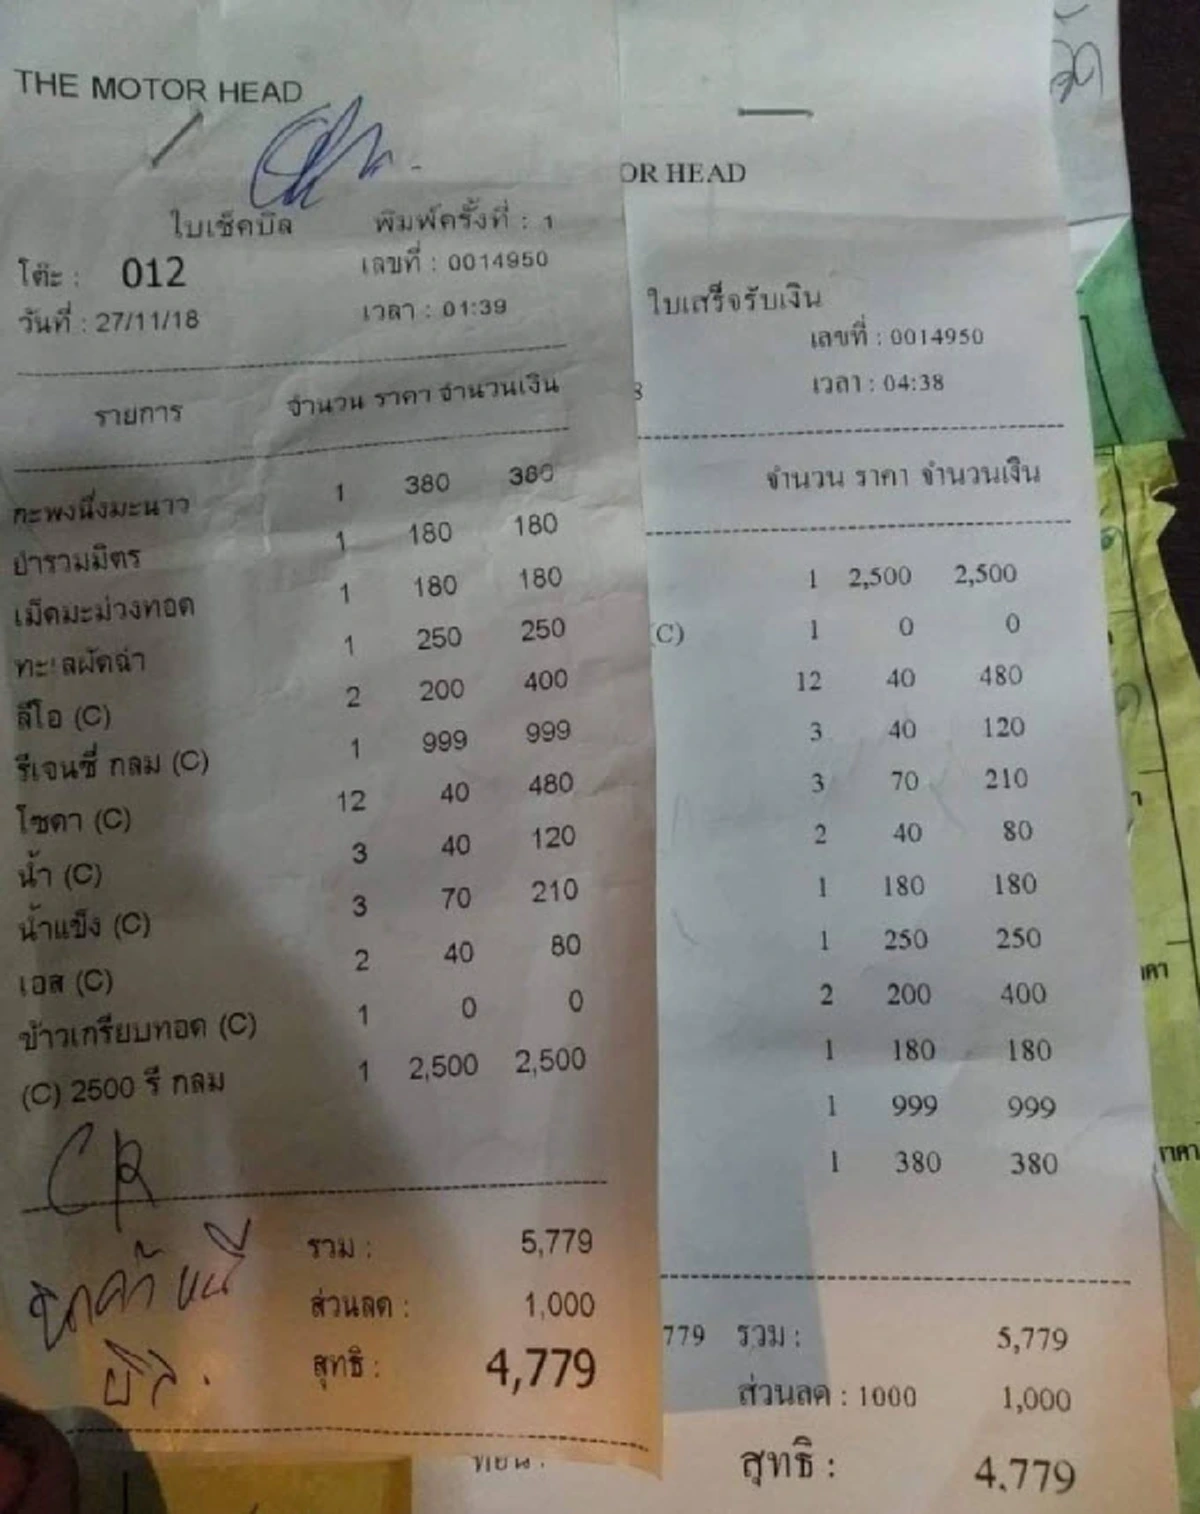 THE MOTOR HEAD
ใบเช็คบิล พิมพ์ครั้งที่ : 1
โต๊ะ : 012 เลขที่ : 0014950
วันที่ : 27/11/18 เวลา : 01:39
รายการ จำนวน ราคา จำนวนเงิน
กะพงนึ่งมะนาว 1 380 380
ยำรวมมิตร 1 180 180
เม็ดมะม่วงทอด 1 180 180
ทะเลผัดฉ่า 1 250 250
ลีโอ (C) 2 200 400
รีเจนซี่ กลม (C) 1 999 999
โซดา (C) 12 40 480
น้ำ (C) 3 40 120
น้ำแข็ง (C) 3 70 210
เอส (C) 2 40 80
ข้าวเกรียบทอด (C) 1 0 0
(C) 2500 รี กลม 1 2,500 2,500
รวม : 5,779
ส่วนลด : 1,000
สุทธิ : 4,779
CR
ลูกค้า หนี
บิล.
OR HEAD
ใบเสร็จรับเงิน
เลขที่ : 0014950
8 เวลา : 04:38
จำนวน ราคา จำนวนเงิน
1 2,500 2,500
(C) 1 0 0
12 40 480
3 40 120
3 70 210
2 40 80
1 180 180
1 250 250
2 200 400
1 180 180
1 999 999
1 380 380
779 รวม : 5,779
ส่วนลด : 1000 1,000
สุทธิ : 4,779